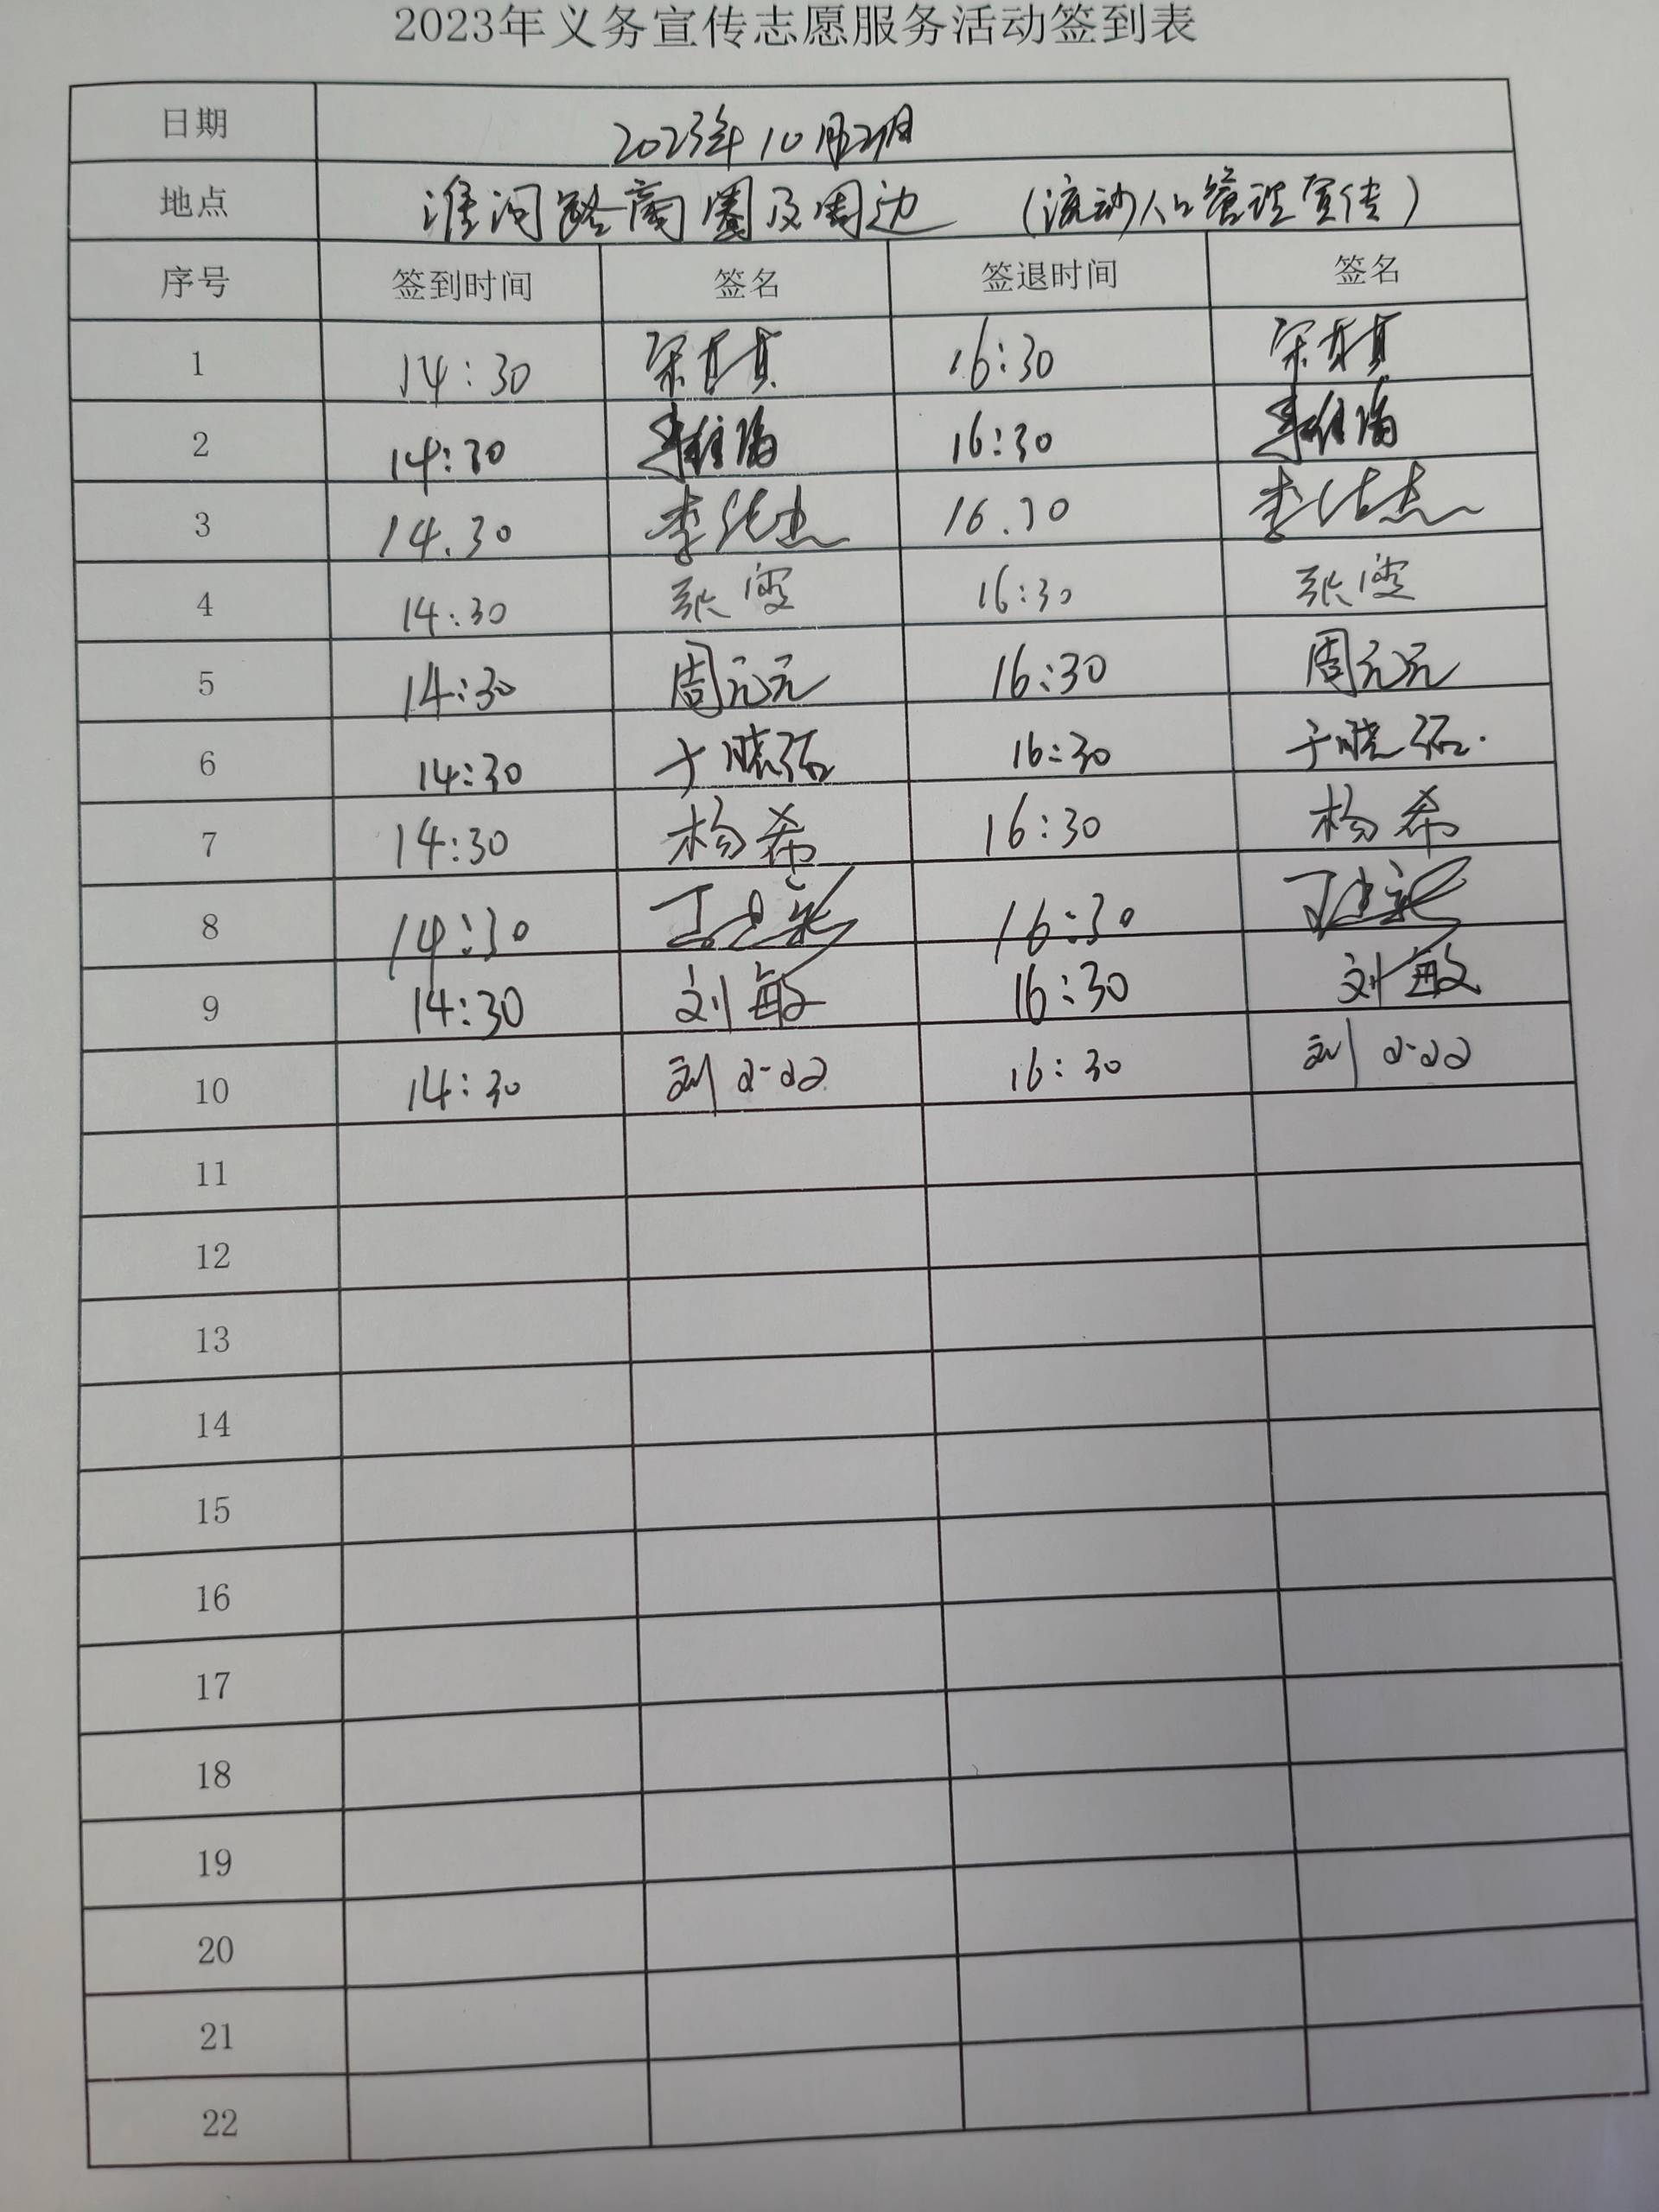 2023年义务宣传志愿服务活动签到表
日期 2023年10月 日
地点 淮河路商圈及周边 (流动人口管理宣传)
序号 签到时间 签名 签退时间 签名
1 14:30 宋 16:30 宋
2 14:30 16:30
3 14.30 李 杰 16.30 李 杰
4 14:30 张雯 16:30 张雯
5 14:30 周元元 16:30 周元元
6 14:30 于晓 16:30 于晓
7 14:30 杨希 16:30 杨希
8 14:30 丁建 16:30 丁建
9 14:30 刘敏 16:30 刘敏
10 14:30 刘 16:30 刘
11
12
13
14
15
16
17
18
19
20
21
22